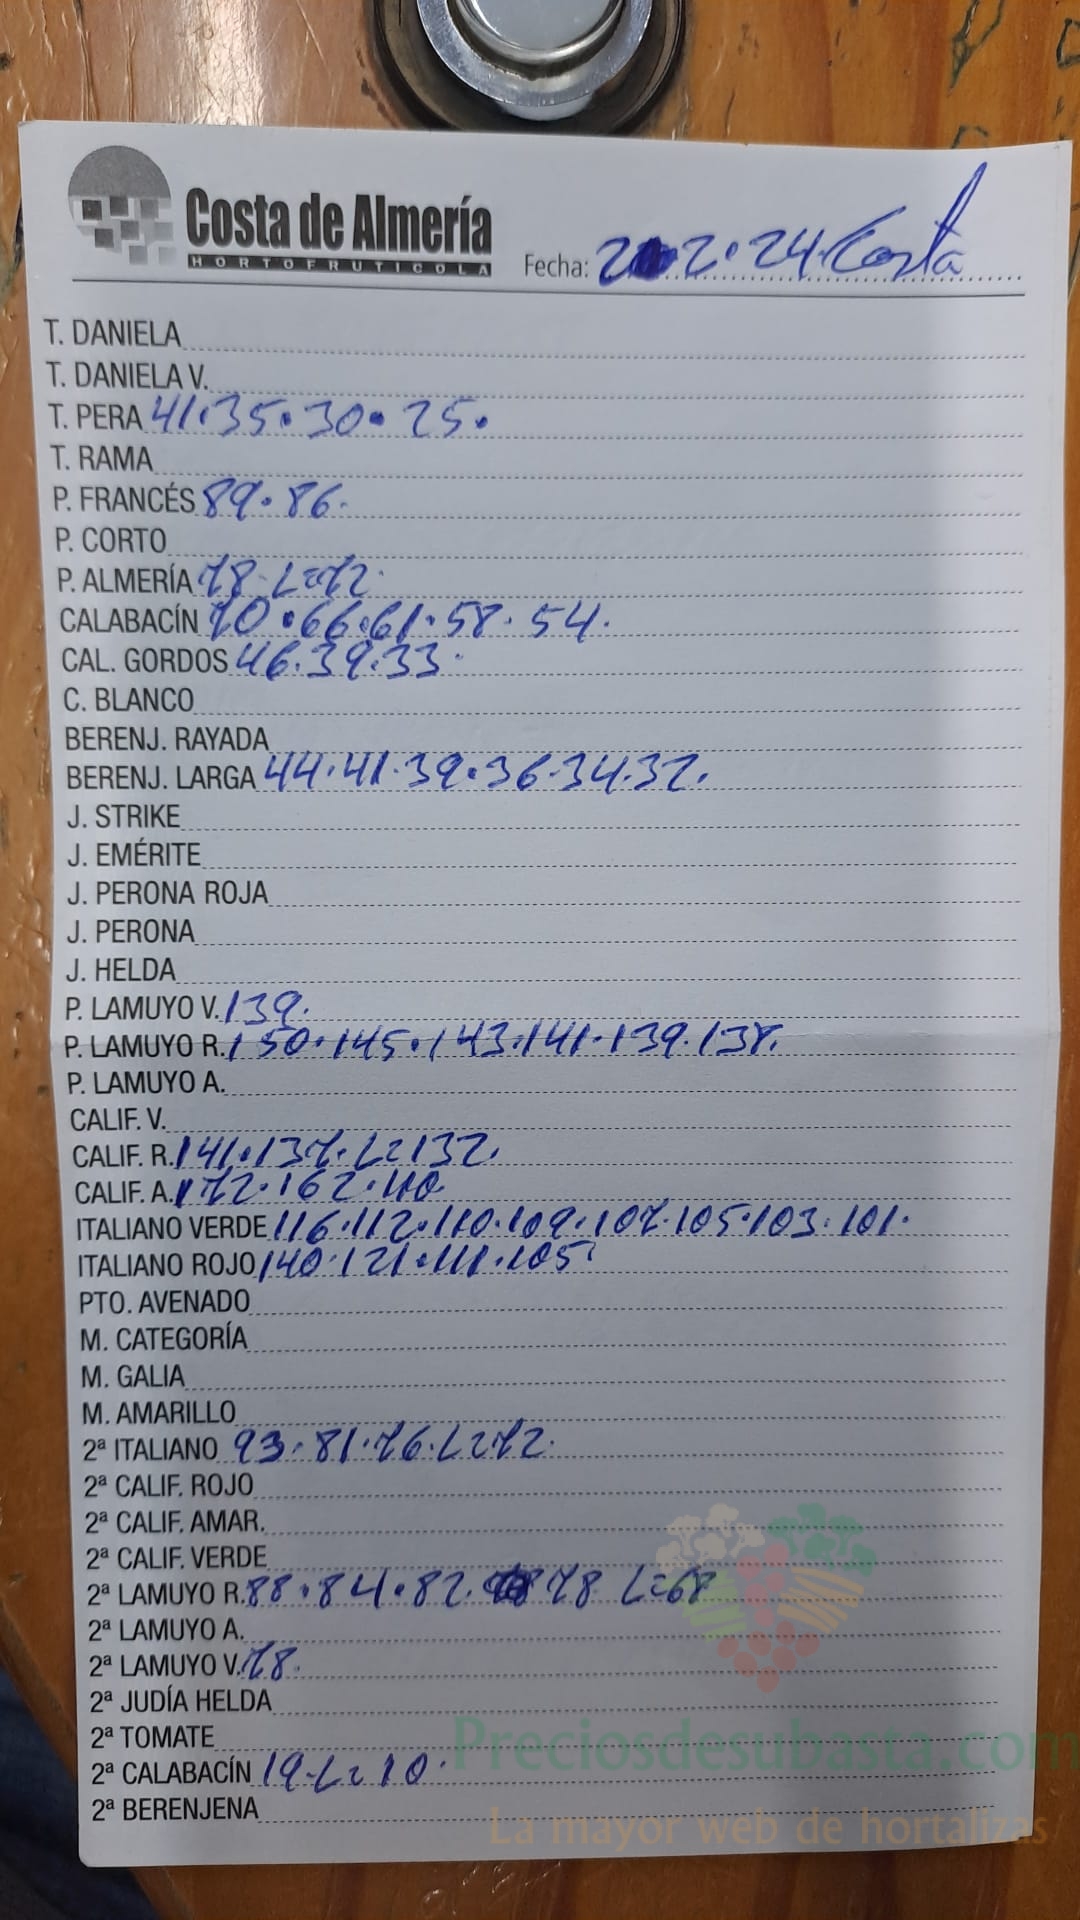 Costa de Almería
HORTOFRUTICOLA
Fecha: 2 2.24. Costa
T. DANIELA
T. DANIELA V.
T. PERA 41.35.30.25.
T. RAMA
P. FRANCÉS 89.86.
P. CORTO
P. ALMERÍA 78-L=72.
CALABACÍN 70.66.61.58.54.
CAL. GORDOS 46.39.33.
C. BLANCO
BERENJ. RAYADA
BERENJ. LARGA 44.41.39.36.34.32.
J. STRIKE
J. EMÉRITE
J. PERONA ROJA
J. PERONA
J. HELDA
P. LAMUYO V. 139.
P. LAMUYO R. 150.145.143.141.139.138.
P. LAMUYO A.
CALIF. V.
CALIF. R. 141.137.L=132.
CALIF. A. 172.162.110.
ITALIANO VERDE 116.112.110.109.107.105.103.101.
ITALIANO ROJO 140.121.111.105.
PTO. AVENADO
M. CATEGORÍA
M. GALIA
M. AMARILLO
2ª ITALIANO 93.81.76.L=72.
2ª CALIF. ROJO
2ª CALIF. AMAR.
2ª CALIF. VERDE
2ª LAMUYO R. 88.84.82. 78 L=68
2ª LAMUYO A.
2ª LAMUYO V. 78.
2ª JUDÍA HELDA
2ª TOMATE
2ª CALABACÍN 19-L=10.
2ª BERENJENA
Preciosdesubasta.com
La mayor web de hortalizas